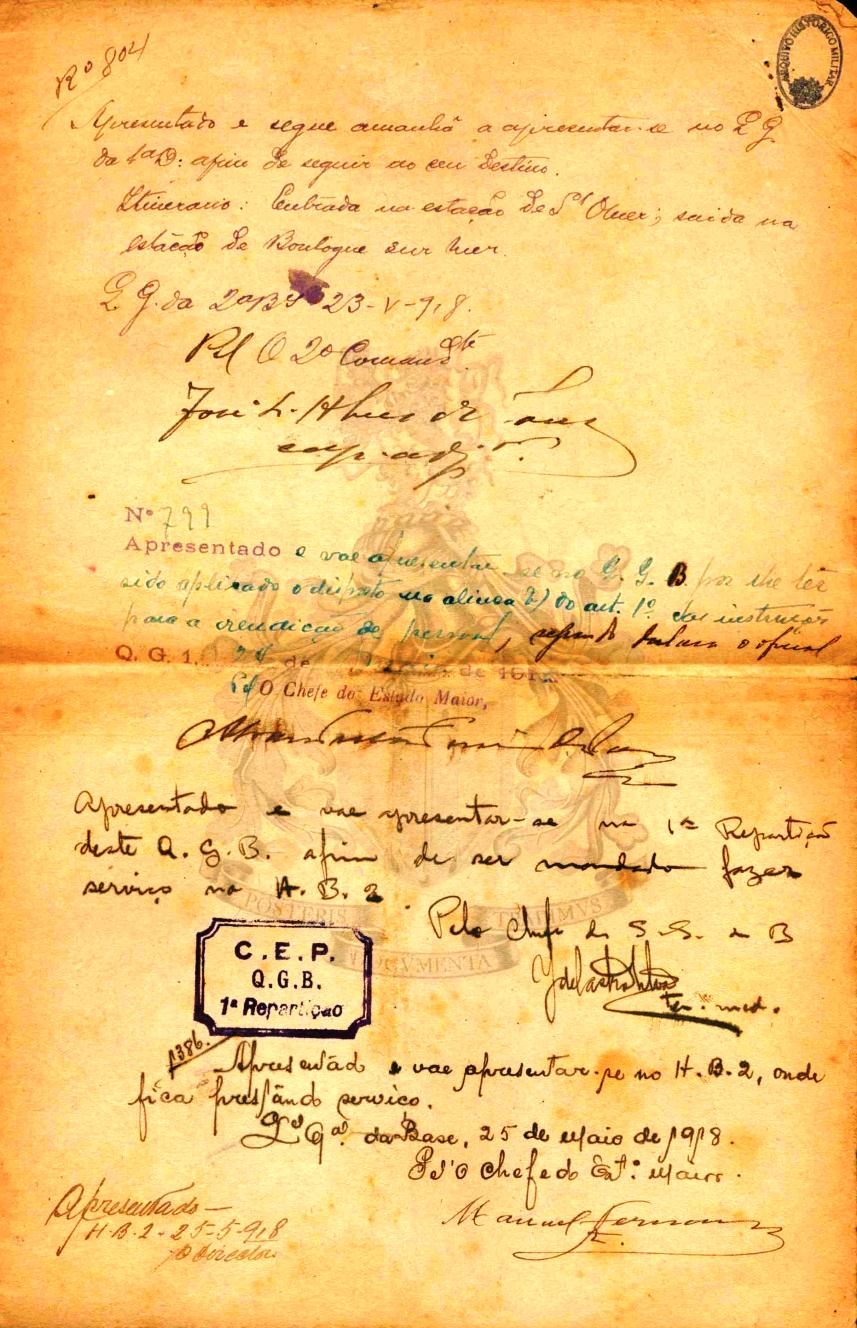 Nº 804
ARQUIVO HISTÓRICO MILITAR
Apresentado e segue amanhã a apresentar-se no Q G
da 1ª D: afim de seguir ao seu destino.
Itinerario: Entrada na estação de St Omer; saida na
estação de Boulogne sur mer.
Q G. da 2ª 23-V-918.
Pel O 2º Comandte
José
Nº 799
Apresentado e vae apresentar-se no Q. G. B por lhe ter
sido aplicado o disposto na alinea b) do art. 1º das instruções
para a rendição de pessoal, segundo declara o oficial
Q. G. 1. 24 de Maio de 191
Pel O Chefe do Estado Maior,
Apresentado e vae apresentar-se na 1ª Repartição
deste Q. G. B. afim de ser mandado fazer
serviço no H. B. 2
POSTERIS TRADIMVS
Pelo Chefe do S. S. B
DOCVMENTA
C.E.P.
Q.G.B.
1ª Repartição
Ten. med.
1386.
Apresentado e vae apresentar-se no H. B. 2, onde
fica prestando serviço.
Qel Gal da Base, 25 de Maio de 1918.
Pel'O Chefe do Estº Maior.
Manuel
Apresentado —
H. B. 2 - 25-5-918
O Director